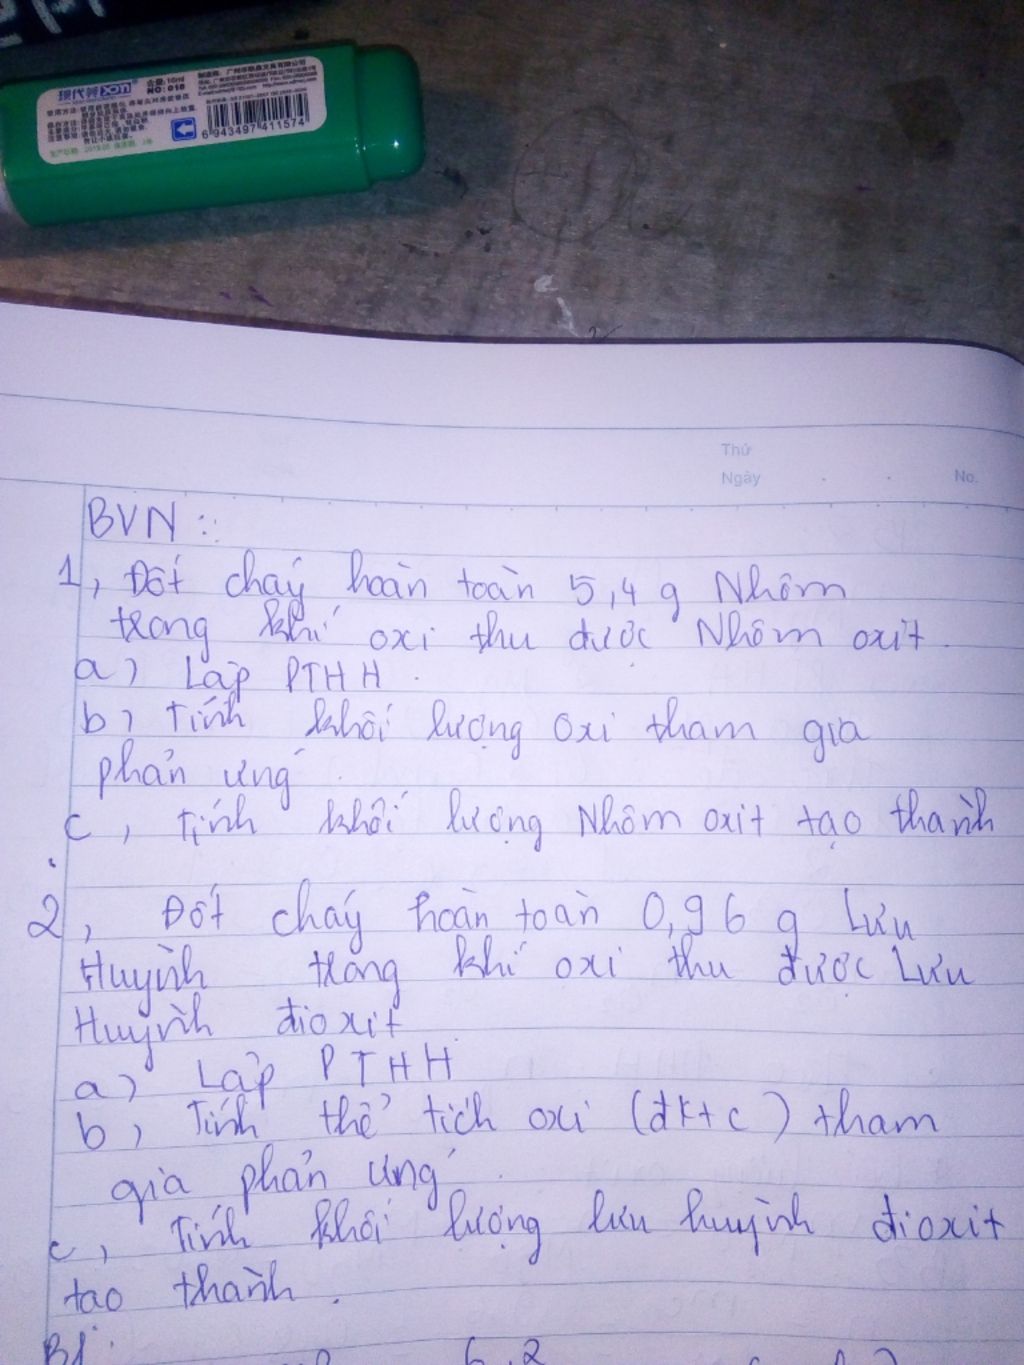 现代美
NO: 018
6 943497 411574
Thứ
Ngày
No.
BVN :
1, Đốt cháy hoàn toàn 5,4 g Nhôm
trong khí oxi thu được Nhôm oxit.
a) Lập PTHH.
b) Tính khối lượng Oxi tham gia
phản ứng.
c, Tính khối lượng Nhôm oxit tạo thành
2, Đốt cháy hoàn toàn 0,96 g Lưu
Huỳnh trong khí oxi thu được Lưu
Huỳnh đioxit
a) Lập PTHH
b, Tính thể tích oxi (đktc) tham
gia phản ứng.
c, Tính khối lượng lưu huỳnh đioxit
tạo thành.
6,2